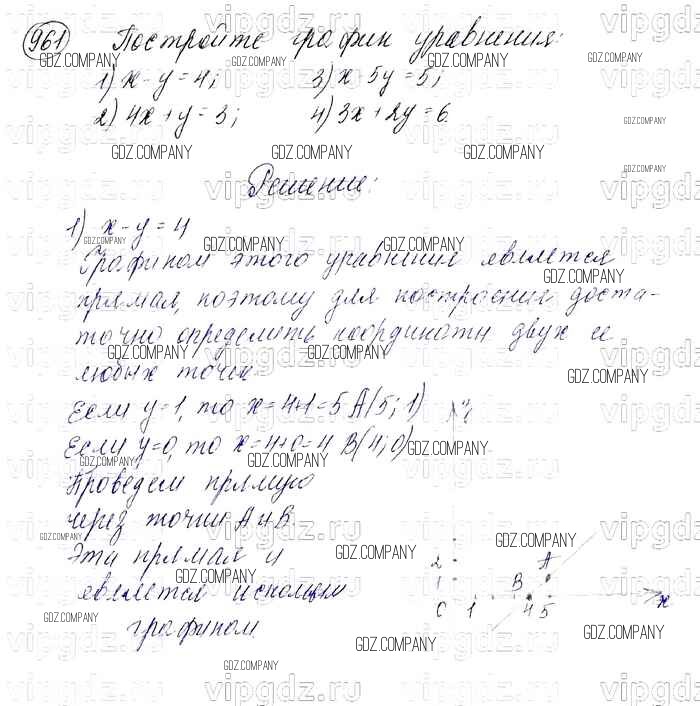 961 Постройте график уравнения:
1) x - y = 4; 3) x - 5y = 5;
2) 4x + y = 3; 4) 3x + 2y = 6.
Решение:
1) x - y = 4
Графиком этого уравнения является
прямая, поэтому для построения доста-
точно определить координаты двух ее
любых точек
Если y=1, то x=4+1=5 A(5; 1)
Если y=0, то x=4+0=4 B(4; 0)
Проведем прямую
через точки A и B.
Эта прямая и
является искомым
графиком
y
2
1
A
B
0 1 4 5
x
GDZ.COMPANY
vipgdz.ru